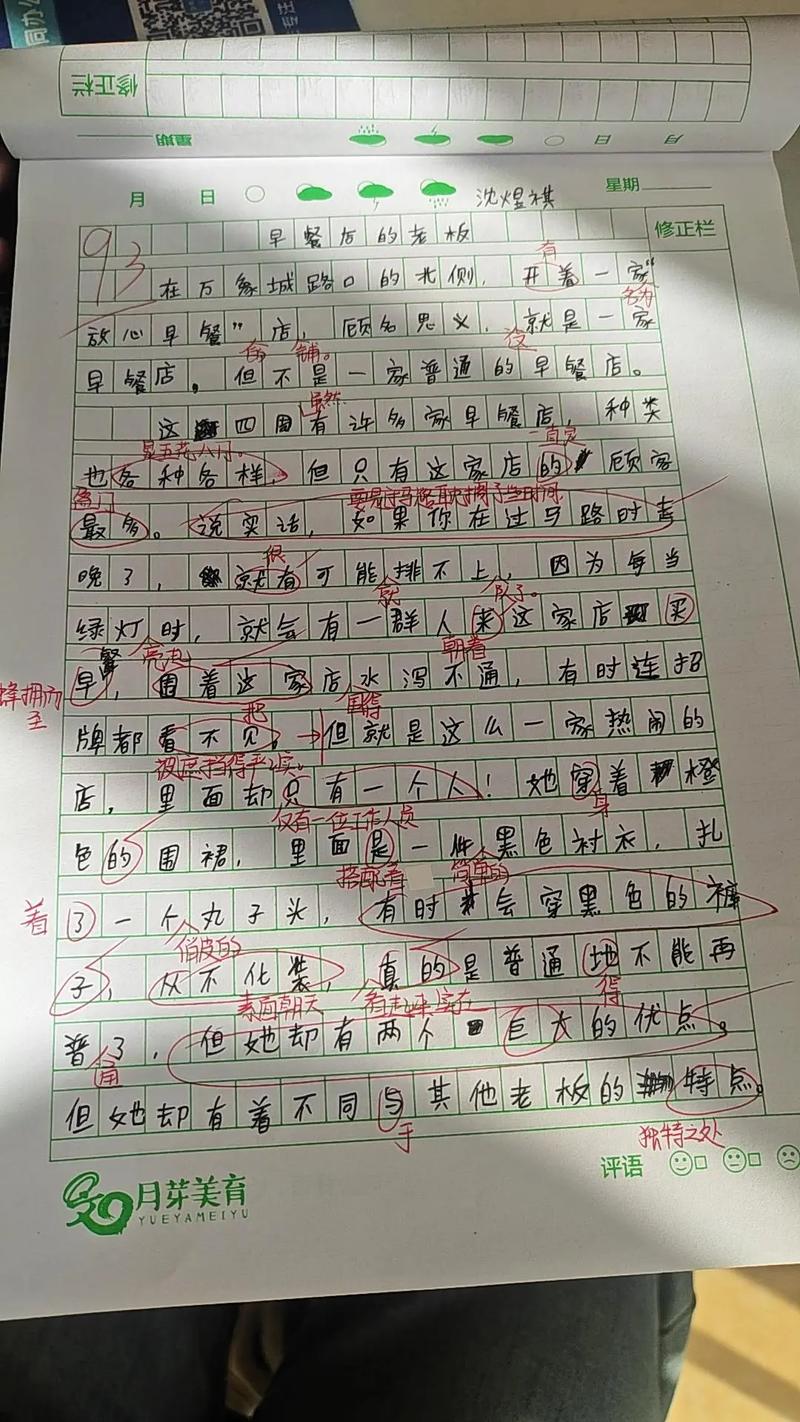 修正栏
月 日 星期
月 日 星期
沈煜祺
93
早餐店的老板
修正栏
有
在万象城路口的北侧，开着一家“
名为
放心早餐”店，顾名思义，就是一家
食 铺。 没
早餐店。但不是一家普通的早餐店。
虽然
这四周有许多家早餐店，种类
是五花八门。 一直是
也各种各样，但只有这家店的顾客
最多。说实话，如果你在过马路时去
很
晚了，就有可能排不上，因为每当
就 队了。
绿灯时，就会有一群人来这家店买
餐 亮起 朝着
早，围着这家店水泻不通，有时连招
蜂拥而至
把 围得
牌都看不见。但就是这么一家热闹的
被遮挡得严实。
店，里面却只有一个人！她穿着橙
仅有一位工作人员 身
色的围裙，里面是一件黑色衬衣，扎
搭配着 简单的
着
了一个丸子头，有时会穿黑色的裤
俏皮的
子，从不化装，真的是普通地不能再
素面朝天 看起来实在 得
普了，但她却有两个巨大的优点。
但她却有着不同与其他老板的特点。
于 独特之处
评语
月芽美育
YUEYAMEIYU